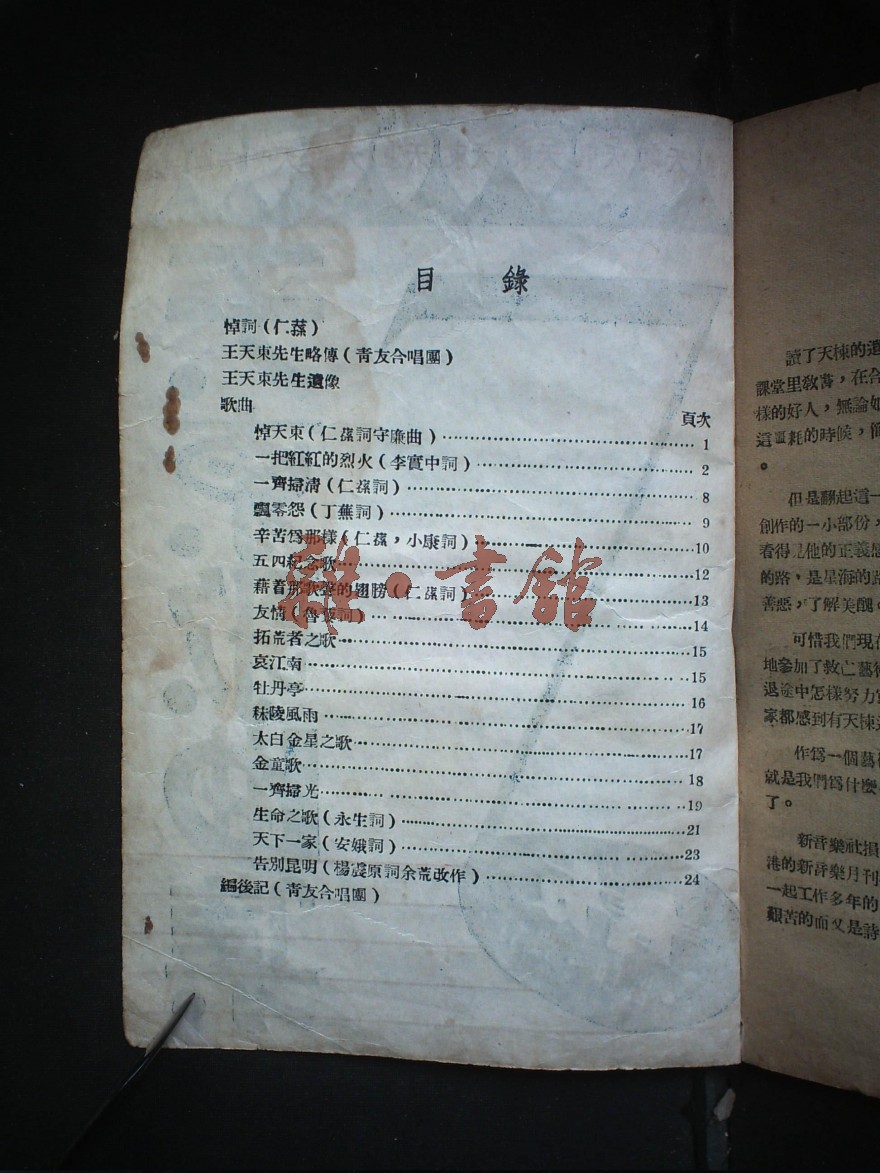 目錄
悼詞(仁蓀)
王天東先生略傳(青友合唱團)
王天東先生遺像
歌曲
頁次
悼天東(仁蓀詞守廉曲)……1
一把紅紅的烈火(李實中詞)……2
一齊掃清(仁蓀詞)……8
飄零怨(丁蕪詞)……9
辛苦爲那樣(仁蓀,小康詞)……10
五四紀念歌……12
藉着那歌聲的翅膀(仁蓀詞)……13
友情(魯 詞)……14
拓荒者之歌……15
哀江南……15
牡丹亭……16
秣陵風雨……17
太白金星之歌……17
金童歌……18
一齊掃光……19
生命之歌(永生詞)……21
天下一家(安娥詞)……23
告別昆明(楊震原詞余荒改作)……24
編後記(青友合唱團)
雜·書館
讀了天棟的遺
課堂里敎書,在合
樣的好人,無論如
這噩耗的時候,
。
但是翻起這一
創作的一小部份,
看得見他的正義感
的路,是星海的路
善惡,了解美醜。
可惜我們現在
地參加了救亡藝術
退途中怎樣努力宣
家都感到有天棟
作爲一個藝術
就是我們爲什麼
了。
新音樂社損
港的新音樂月刊
一起工作多年的
艱苦的而又是詩